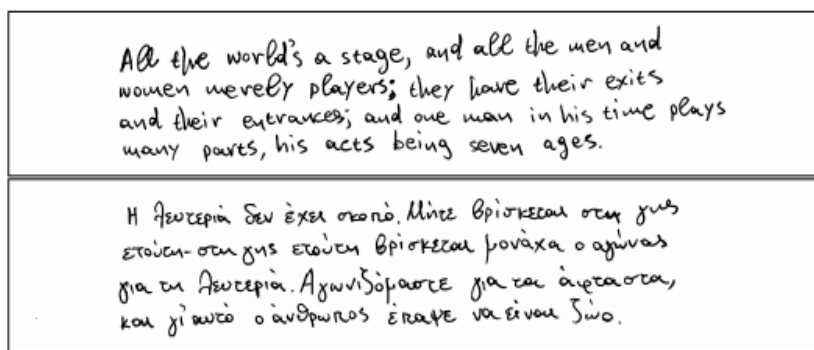 All the world's a stage, and all the men and
women merely players; they have their exits
and their entrances; and one man in his time plays
many parts, his acts being seven ages.
Η λευτεριά δεν έχει σκοπό. Μήτε βρίσκεται στη γης
ετούτη-στη γης ετούτη βρίσκεται μονάχα ο αγώνας
για τη λευτεριά. Αγωνιζόμαστε για τα άφταστα,
και γι' αυτό ο άνθρωπος έπαψε να είναι ζώο.